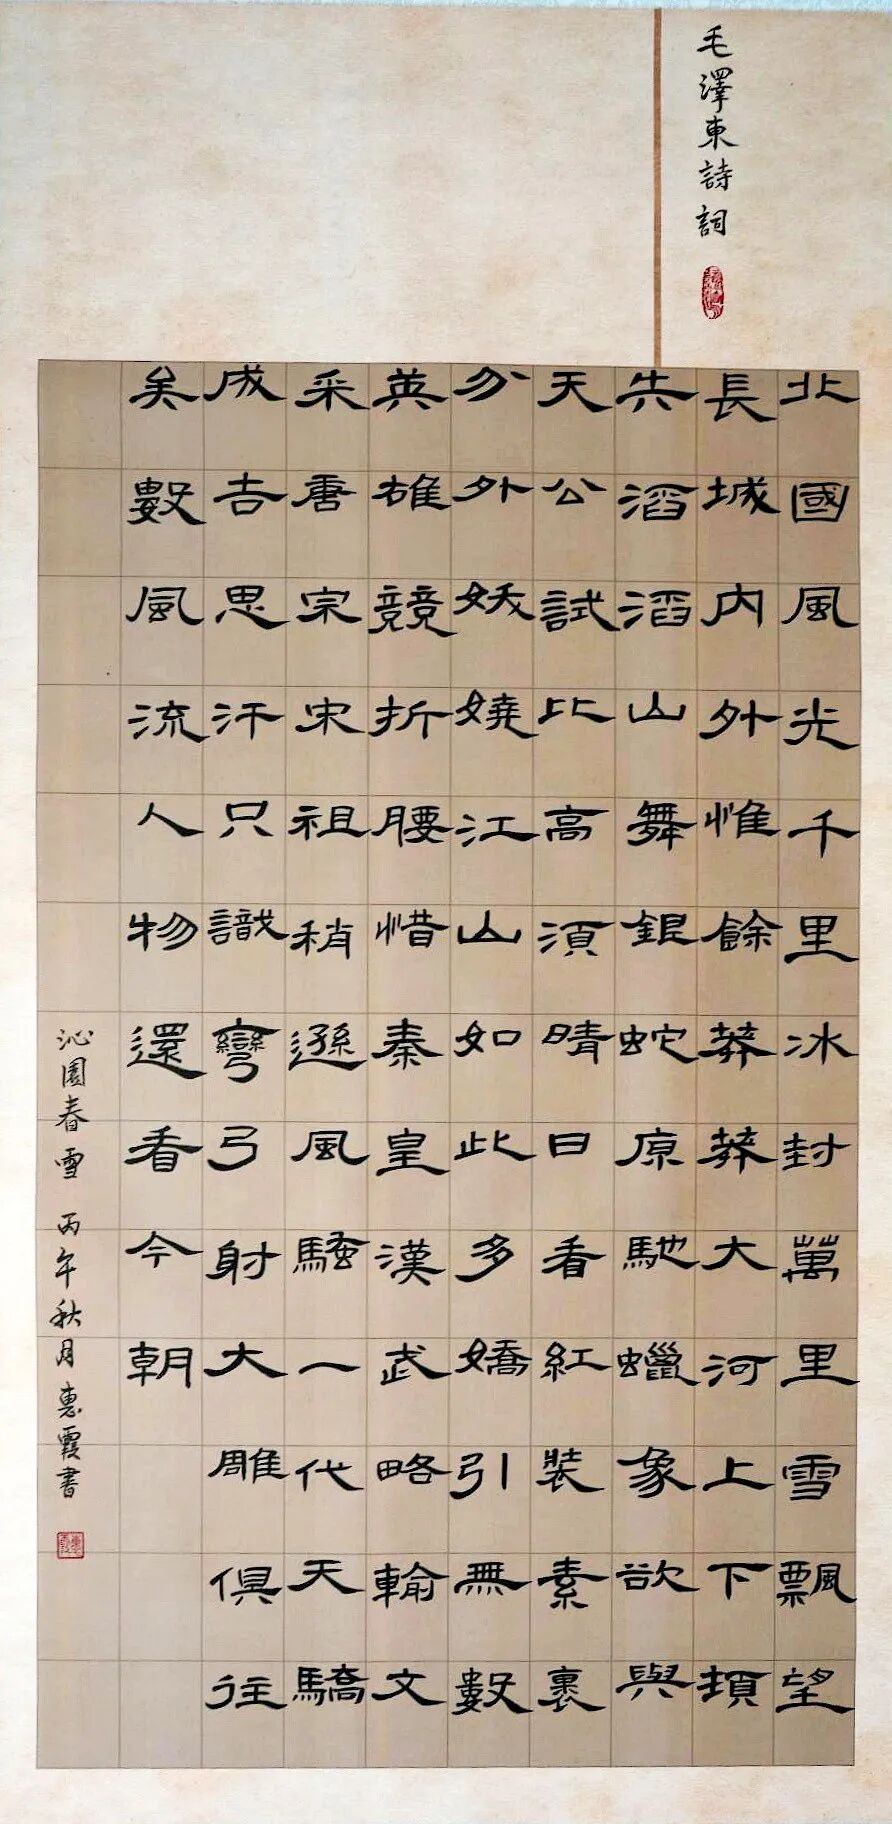 毛澤東詩詞
北國風光千里冰封萬里雪飄望
長城内外惟餘莽莽大河上下頓
失滔滔山舞銀蛇原馳蠟象欲與
天公試比高須晴日看紅裝素裹
分外妖嬈江山如此多嬌引無數
英雄競折腰惜秦皇漢武略輸文
采唐宗宋祖稍遜風騷一代天驕
成吉思汗只識彎弓射大雕俱往
矣數風流人物還看今朝
沁園春雪 丙午秋月惠霞書